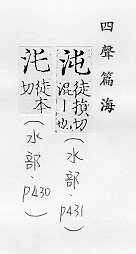 四聲篇海
沌徒損切
混丨也
(水部p431)
徒本
切
(水部、p430)